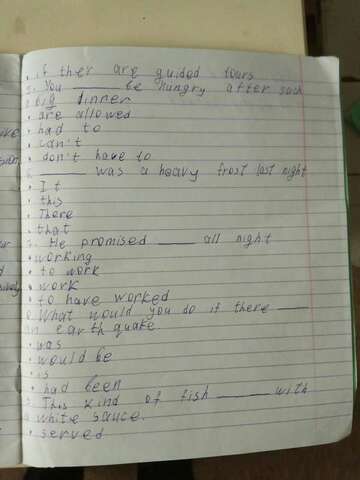 • if ther are guided tours
5. You ____ be hungry after such
a big dinner
• are allowed
• had to
• can't
• don't have to
6. ____ was a heavy frost last night
• It
• this
• There
• that
7. He promised ____ all night
• working
• to work
• work
• to have worked
8. What would you do if there ____
an earthquake
• was
• would be
• is
• had been
9. This kind of fish ____ with
a white sauce.
• served